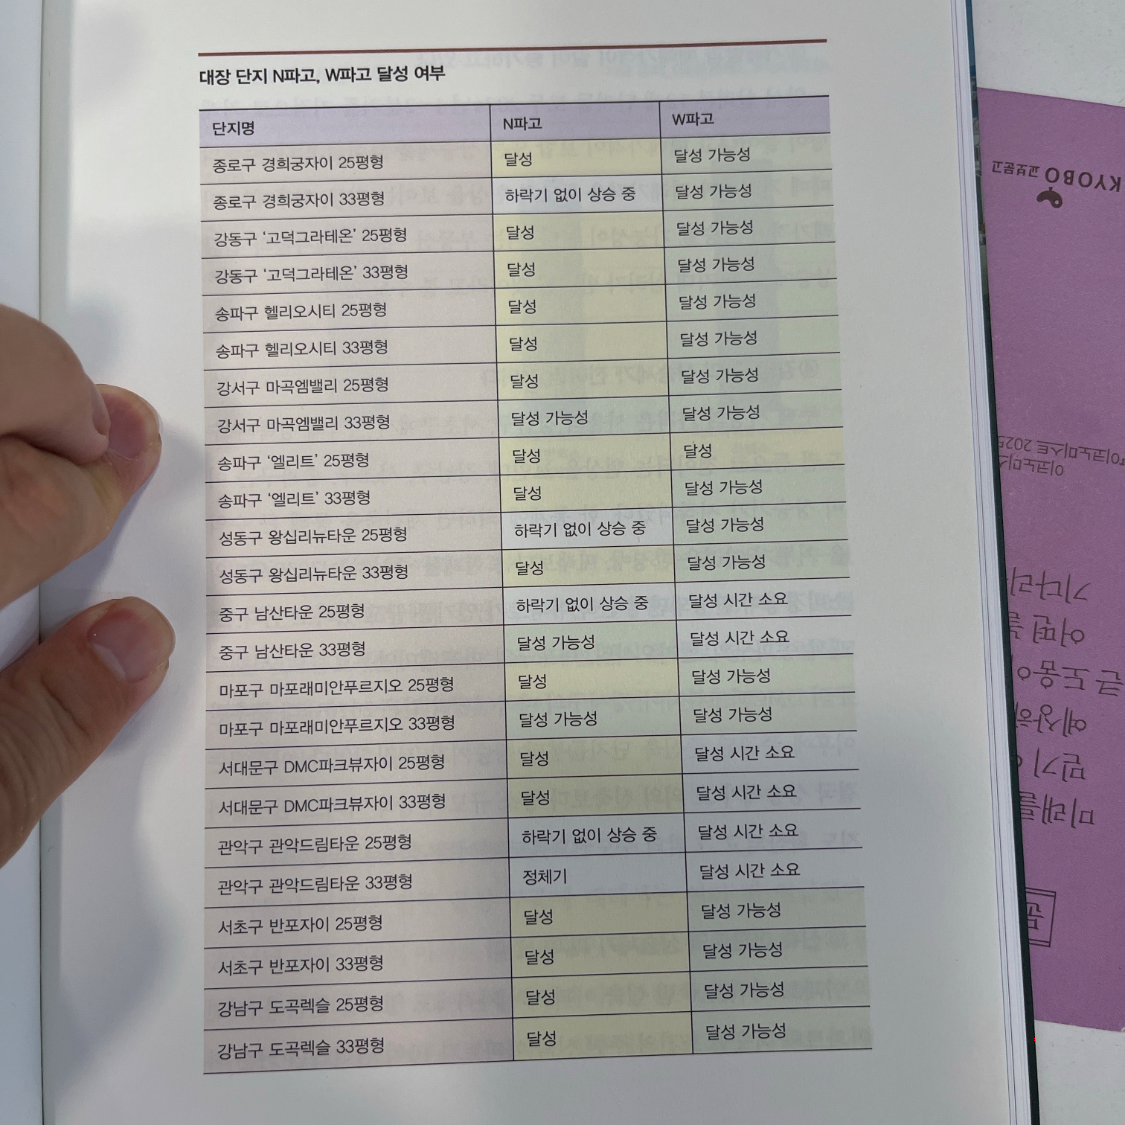 대장 단지 N파고, W파고 달성 여부
단지명 N파고 W파고
종로구 경희궁자이 25평형 달성 달성 가능성
종로구 경희궁자이 33평형 하락기 없이 상승 중 달성 가능성
강동구 '고덕그라테온' 25평형 달성 달성 가능성
강동구 '고덕그라테온' 33평형 달성 달성 가능성
송파구 헬리오시티 25평형 달성 달성 가능성
송파구 헬리오시티 33평형 달성 달성 가능성
강서구 마곡엠밸리 25평형 달성 달성 가능성
강서구 마곡엠밸리 33평형 달성 가능성 달성 가능성
송파구 '엘리트' 25평형 달성 달성
송파구 '엘리트' 33평형 달성 달성 가능성
성동구 왕십리뉴타운 25평형 하락기 없이 상승 중 달성 가능성
성동구 왕십리뉴타운 33평형 달성 달성 가능성
중구 남산타운 25평형 하락기 없이 상승 중 달성 시간 소요
중구 남산타운 33평형 달성 가능성 달성 시간 소요
마포구 마포래미안푸르지오 25평형 달성 달성 가능성
마포구 마포래미안푸르지오 33평형 달성 가능성 달성 가능성
서대문구 DMC파크뷰자이 25평형 달성 달성 시간 소요
서대문구 DMC파크뷰자이 33평형 달성 달성 시간 소요
관악구 관악드림타운 25평형 하락기 없이 상승 중 달성 시간 소요
관악구 관악드림타운 33평형 정체기 달성 시간 소요
서초구 반포자이 25평형 달성 달성 가능성
서초구 반포자이 33평형 달성 달성 가능성
강남구 도곡렉슬 25평형 달성 달성 가능성
강남구 도곡렉슬 33평형 달성 달성 가능성
KYOBO 교보문고
이코노미스트 2025
이코노미스
미래를
믿기
예상하
큰 도움이
어떤
기다리